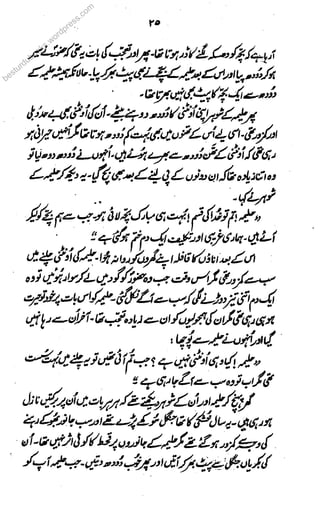 ۲۵
آ رہا ہے کہ بچّے کو دھسکہ لگنے کا ڈر ہوتا تھا۔ پھر اور تعجب کی بات یہ تھی کہ حضورؐ نے سیر
ہو کر دُودھ پیا اور اس کے بعد حلیمہ کے بچّے نے بھی پیٹ بھر کر پیا۔ حالانکہ ہمیشہ حلیمہ کے
دُودھ سے ایک بچّہ کا پیٹ بھی نہیں بھرتا تھا۔
پھر حلیمہ کے شوہر اپنی اُونٹنی کا دُودھ دوہنے بیٹھے۔ اُن کی اُونٹنی بھی بے حد دبلی
اور کمزور تھی۔ اسی لیے اُس کے تھنوں میں بھی بہت کم دُودھ ہوتا تھا مگر اُنہیں حیرانی ہو
رہی تھی کہ اُونٹنی کے تھن دُودھ سے بھرے ہوئے ہیں۔ اُنہوں نے دُودھ دوہنا شروع کیا تو
وہ اتنا زیادہ تھا کہ ان دونوں کے پی لینے کے بعد بھی بچ گیا۔ یہ دیکھ کر حلیمہ کے
شوہر نے کہا۔
”حلیمہ! تم تو خدا کی قسم بہت ہی مبارک بچّہ لائی ہو۔ جب سے ہم بچّے کو لیکر
آئے ہیں۔ ہماری غریبی اور تکلیف ایک دم ختم ہو گئی ہے“
اس کے بعد اناؤں کا قافلہ اپنے گھروں کو روانہ ہوا۔ حلیمہ کی اُونٹنی چلنے میں
سب سے کمزور تھی مگر اس وقت جب وہ حضورؐ کو گود میں لے کر سوار ہوئیں تو وہ
ایک دم اتنی تیز دوڑنے لگی کہ سب سے آگے نکل گئی۔ حلیمہ کو اس بات پر خود تو حیرت
ہو ہی رہی تھی مگر ان کی ہمجولیوں کو ان سے زیادہ تعجب تھا۔ آخر اُن سے رہا نہیں
گیا اور اُنہوں نے پوچھا:
”حلیمہ! کیا وہی اُونٹنی نہیں ہے؟ جب تم آئی تھیں تو یہ چلنے میں بہت سُست
تھی مگر اب تو وہ سب سے آگے جا رہی ہے“
گھر پہنچ کر حلیمہ اور اُن کے شوہر دیکھتے تھے کہ ہر ہر بات میں اُن پر برکتیں نازل
ہو رہی ہیں۔ یہ سال خُشکی کا تھا جنگل سُوکھے پڑے تھے اور سب جانور بھوکے رہنے
کی وجہ سے کمزور ہو گئے تھے مگر حلیمہ کے جانوروں پر قحط کا کوئی اثر نہیں تھا۔ اُن
کی بکریاں جنگل سے پیٹ بھر کر آتیں اور پھر خوب دُودھ دیتیں۔ جب حلیمہ آپ کو